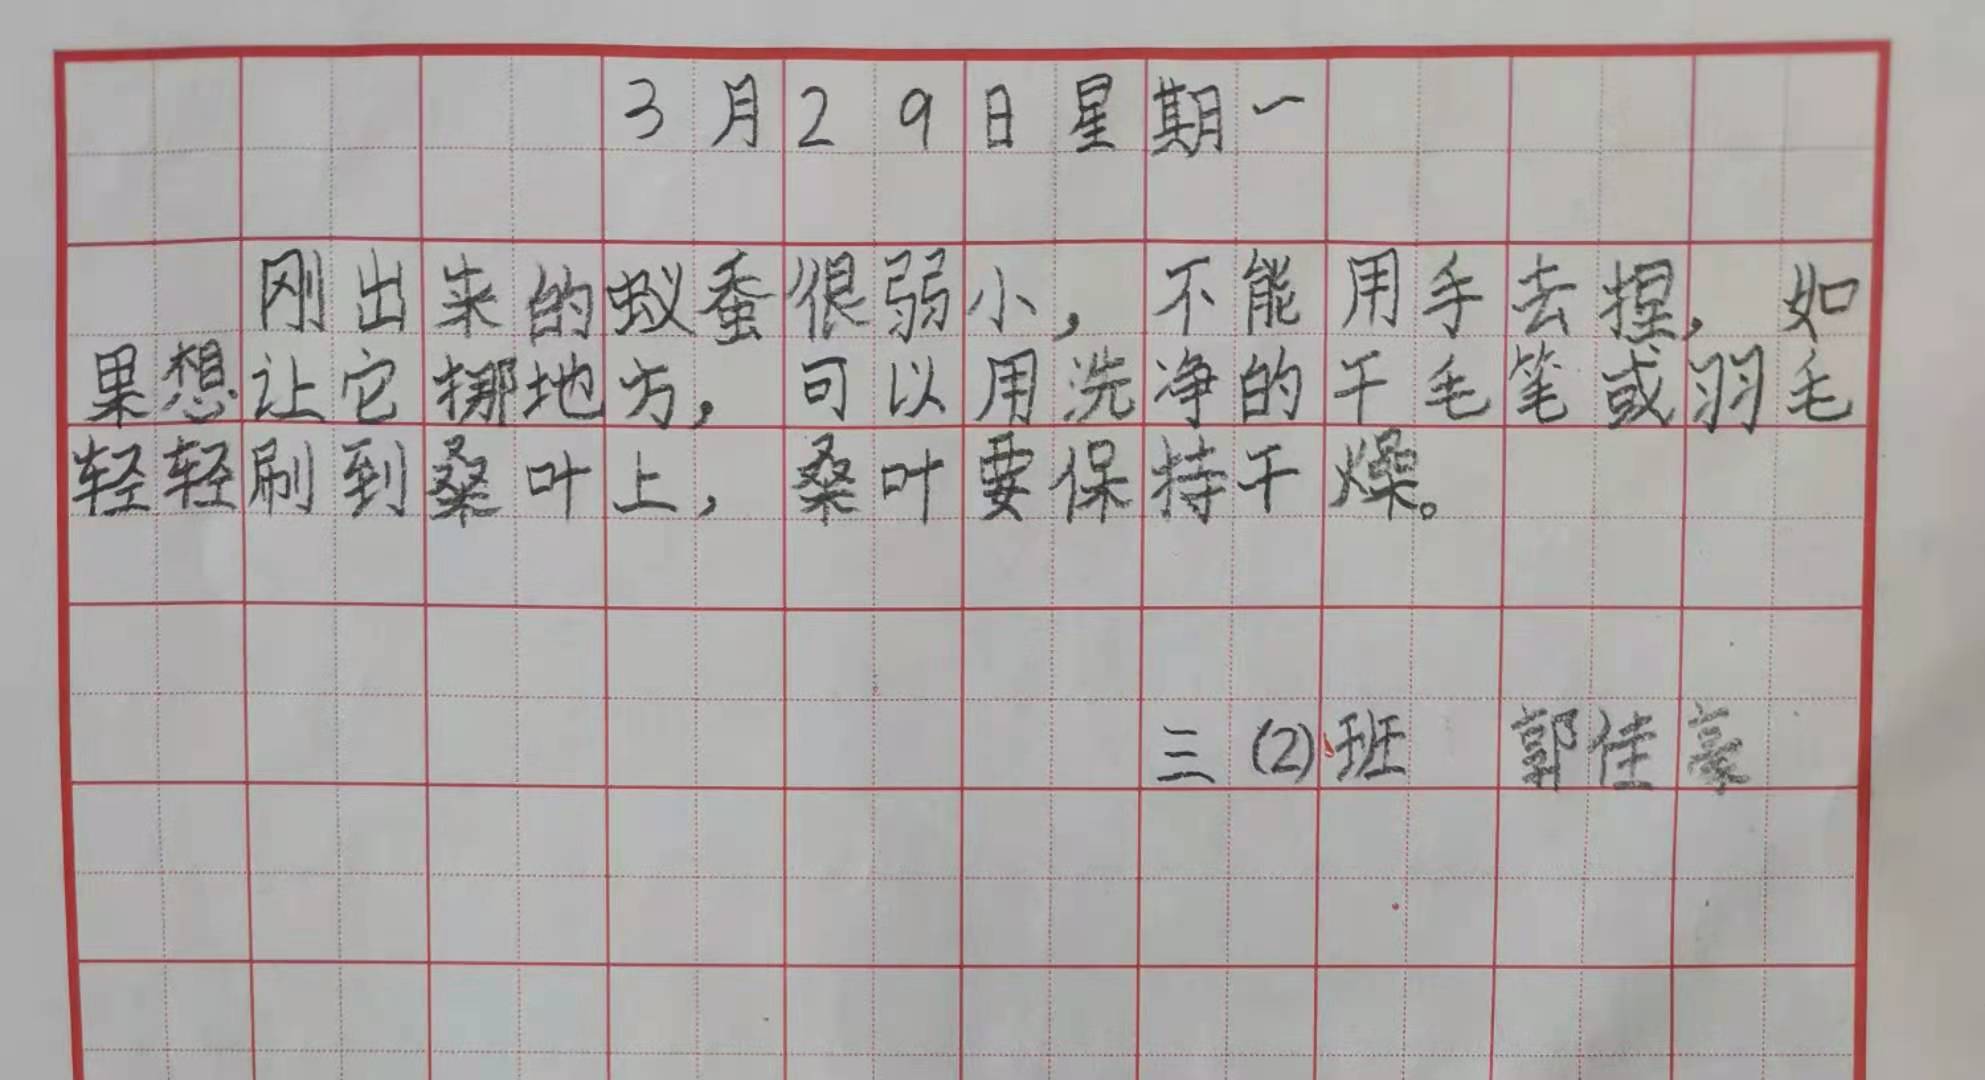 3月29日星期一
刚出来的蚁蚕很弱小，不能用手去捏，如
果想让它挪地方，可以用洗净的干毛笔或羽毛
轻轻刷到桑叶上，桑叶要保持干燥。
三(2)班 郭佳